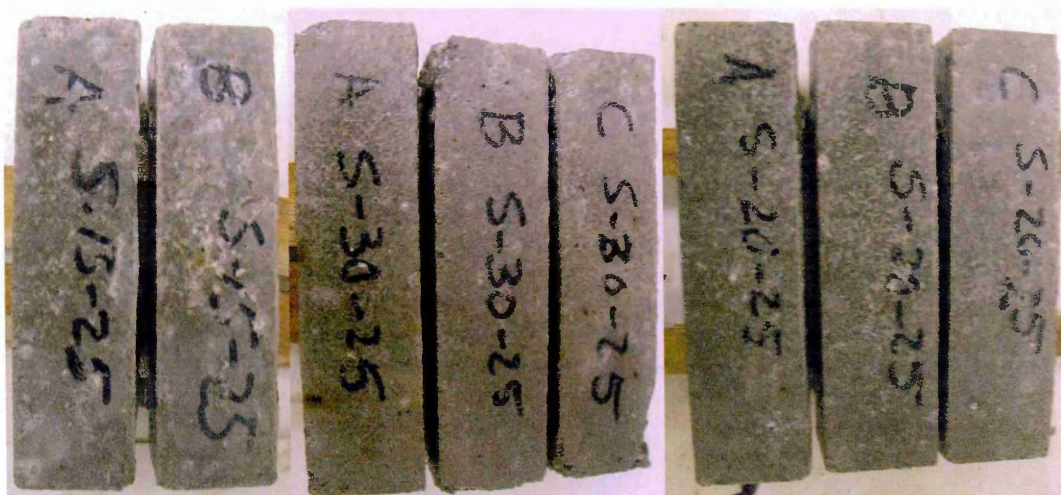 A S-15-25
B S-15-25
A S-30-25
B S-30-25
C S-30-25
A S-20-25
B S-20-25
C S-20-25